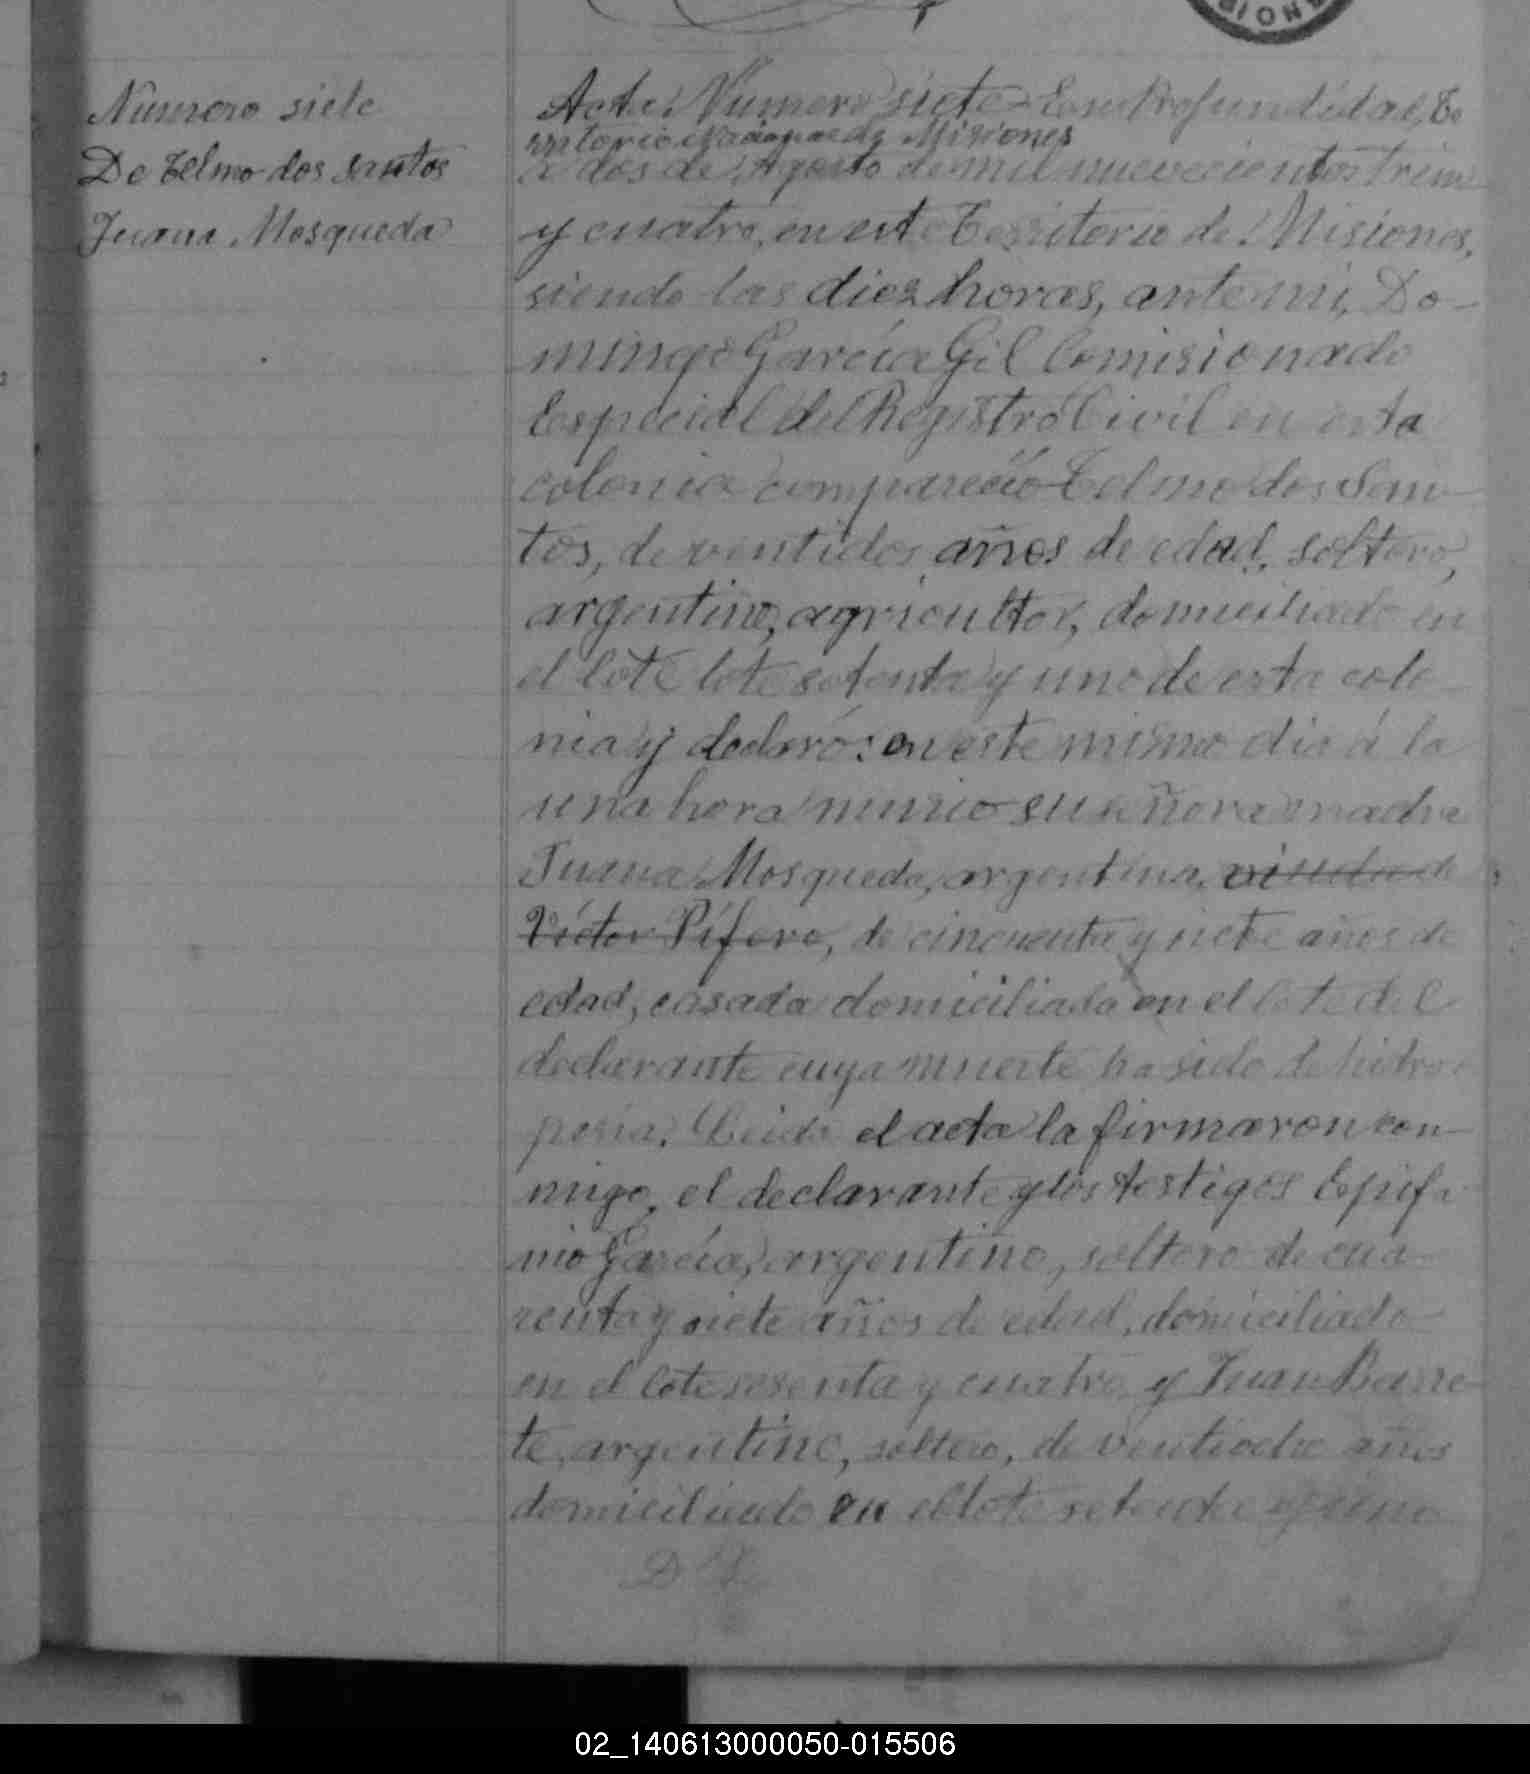 Número siete
De Telmo dos santos
Juana Mosqueda
Acta Número siete = En Profundidad, Te
rritorio Nacional de Misiones
a dos de Agosto de mil nuevecientos trein
y cuatro, en este Territorio de Misiones,
siendo las diez horas, ante mi, Do-
mingo García Gil Comisionado
Especial del Registro Civil en esta
colonia compareció Telmo dos San-
tos, de ventidos años de edad, soltero,
argentino, agricultor, domiciliado en
el lote lote setenta y uno de esta colo-
nia y declaró: en este mismo dia á la
una hora murio su señora madre
Juana Mosqueda, argentina, viuda de
Víctor Píforo, de cincuenta y siete años de
edad, casada domiciliada en el lote del
declarante cuya muerte ha sido de hidro
pesia. Leida el acta la firmaron con-
migo, el declarante y los testigos Epifa
nio García, argentino, soltero de cua-
renta y siete años de edad, domiciliado
en el lote sesenta y cuatro y Juan Barre-
te, argentino, soltero, de ventiocho años
domiciliado en el lote setenta y uno
02_140613000050-015506